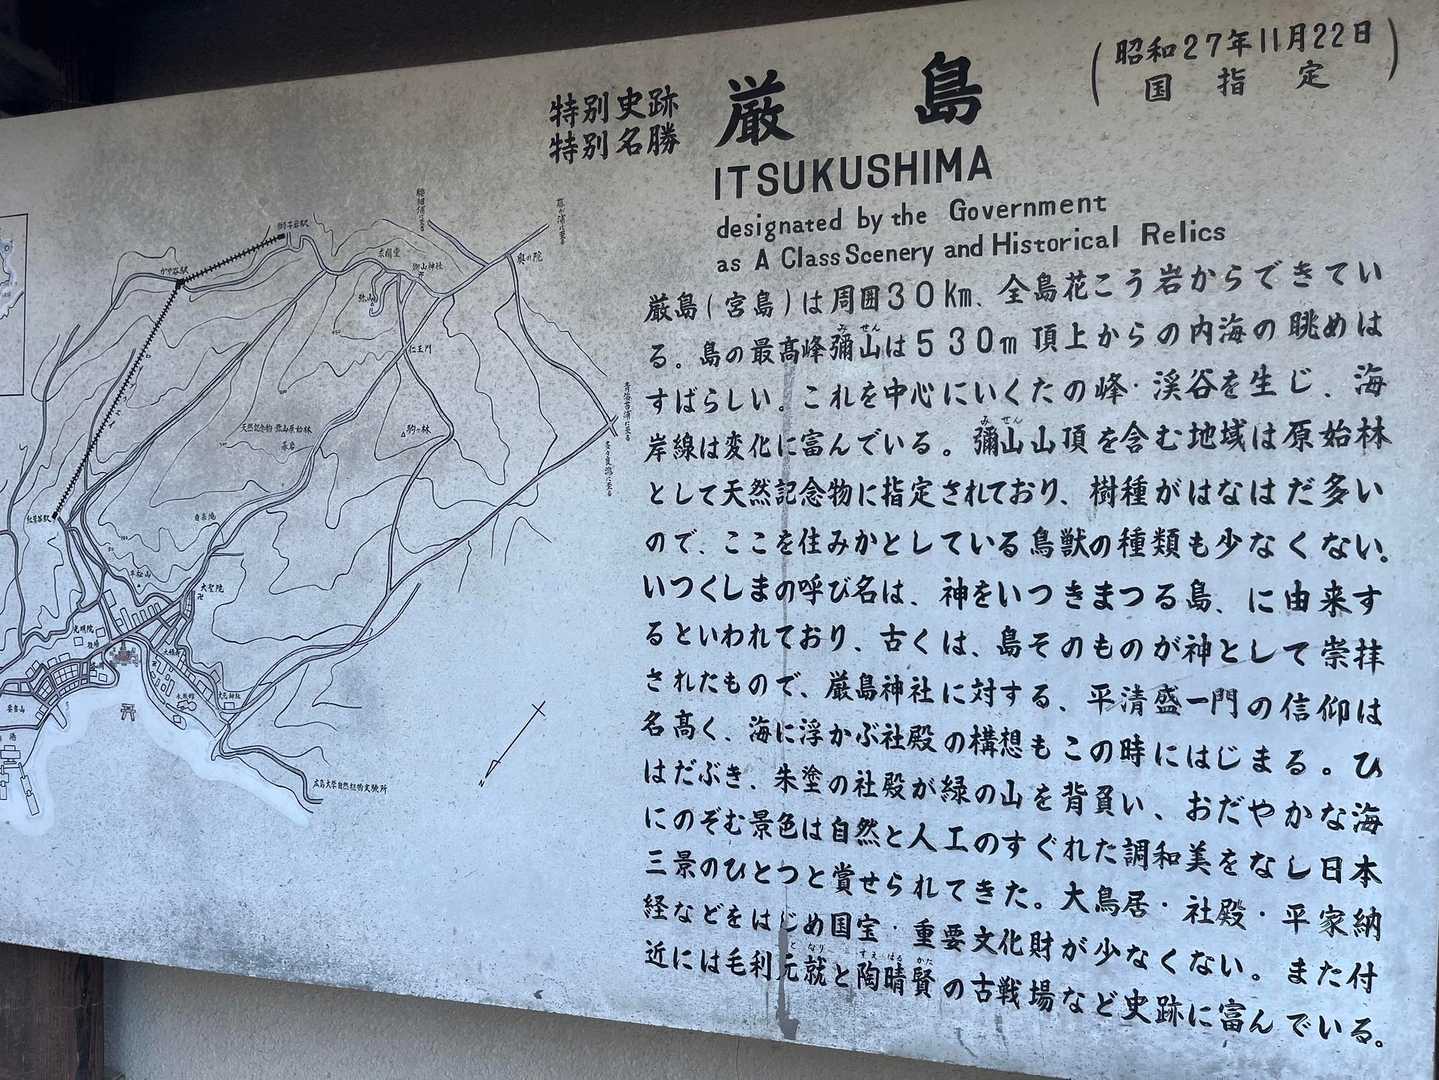 特別史跡
特別名勝
厳島
(昭和27年11月22日
国指定)
ITSUKUSHIMA
designated by the Government
as A Class Scenery and Historical Relics
厳島(宮島)は周囲30Km、全島花こう岩からできてい
る。島の最高峰彌山は530m頂上からの内海の眺めは
みせん
すばらしい。これを中心にいくたの峰・渓谷を生じ、海
岸線は変化に富んでいる。彌山山頂を含む地域は原始林
みせん
として天然記念物に指定されており、樹種がはなはだ多い
ので、ここを住みかとしている鳥獣の種類も少なくない。
いつくしまの呼び名は、神をいつきまつる島、に由来す
るといわれており、古くは、島そのものが神として崇拝
されたもので、厳島神社に対する、平清盛一門の信仰は
名高く、海に浮かぶ社殿の構想もこの時にはじまる。ひ
はだぶき、朱塗の社殿が緑の山を背負い、おだやかな海
にのぞむ景色は自然と人工のすぐれた調和美をなし日本
三景のひとつと賞せられてきた。大鳥居・社殿・平家納
経などをはじめ国宝・重要文化財が少なくない。また付
近には毛利元就と陶晴賢の古戦場など史跡に富んでいる。
となり
すえはるかた
獅子岩駅
かや谷駅
紅葉谷駅
奥の院
御山神社
弥山
仁王門
駒ヶ林
天然記念物 弥山原始林
大聖院
光明院
広島大学自然植物実験所
N